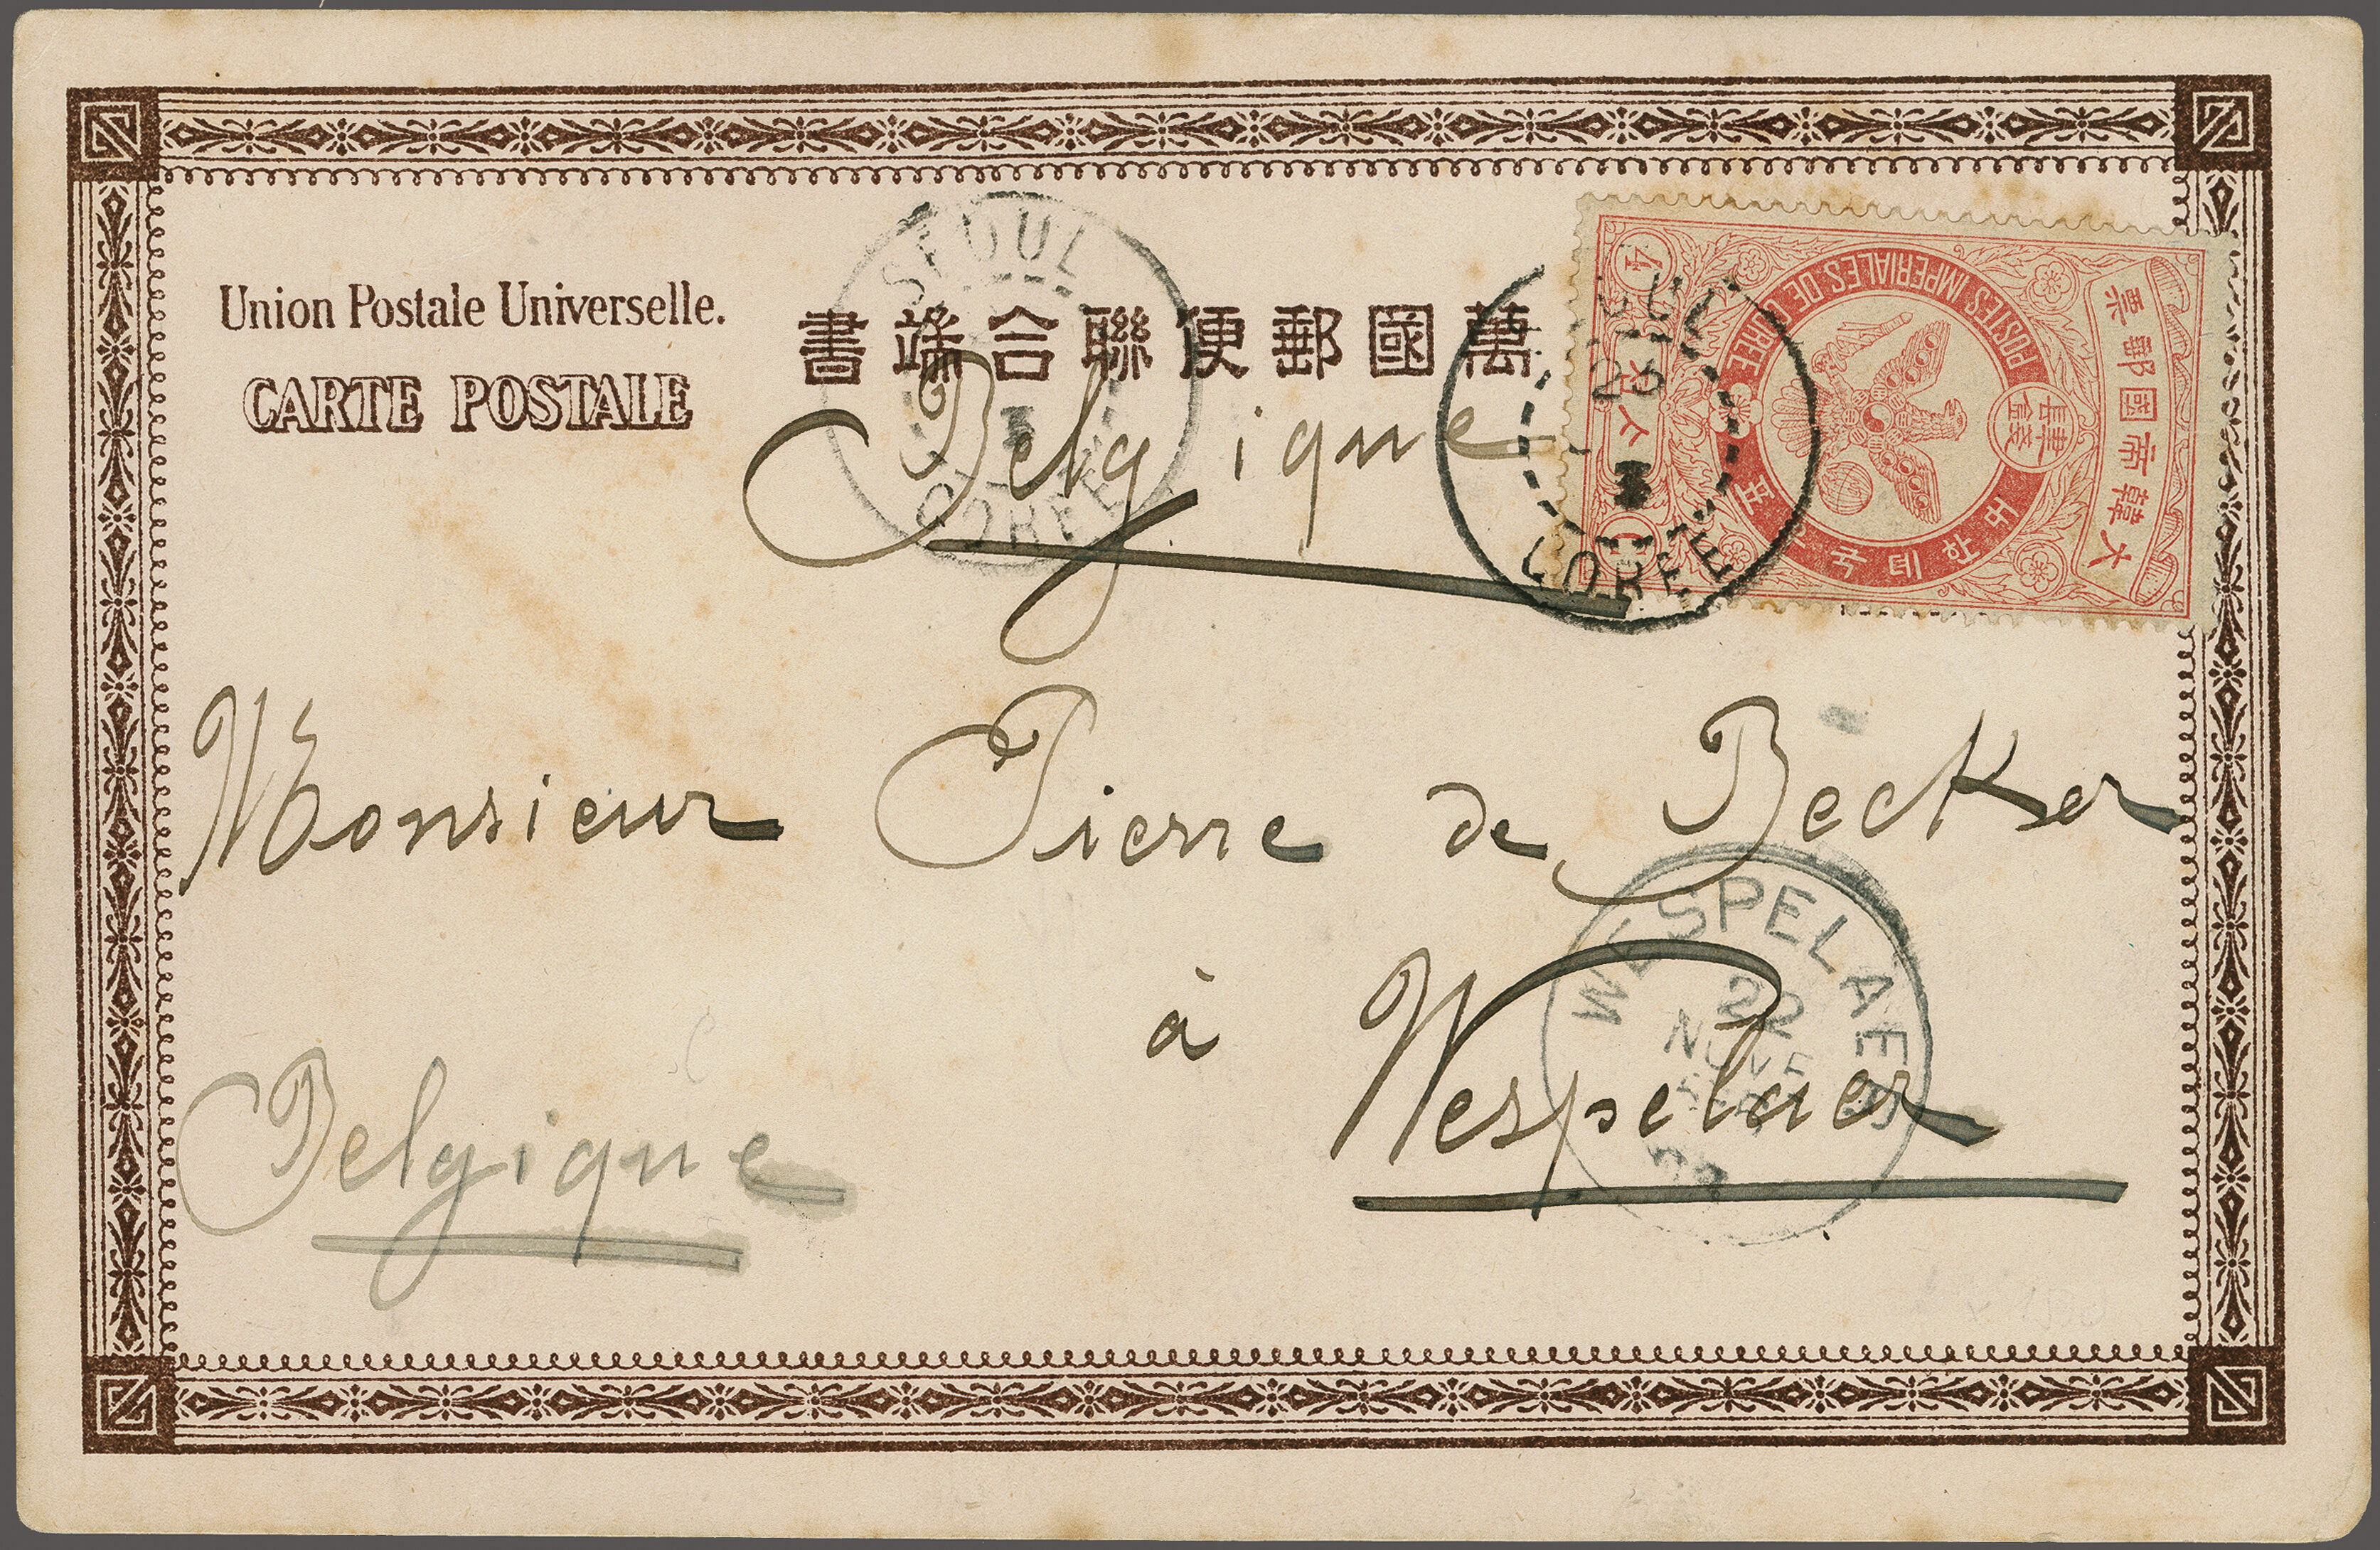 Union Postale Universelle.
CARTE POSTALE
書端合聯便郵國萬
SEOUL
COREE
Belgique
23
COREE
4
大韓帝國郵票
POSTES IMPERIALES DE COREE
Monsieur Pierre de Becker
à Wespelaer
Belgique
WESPELAER
22
NOVE